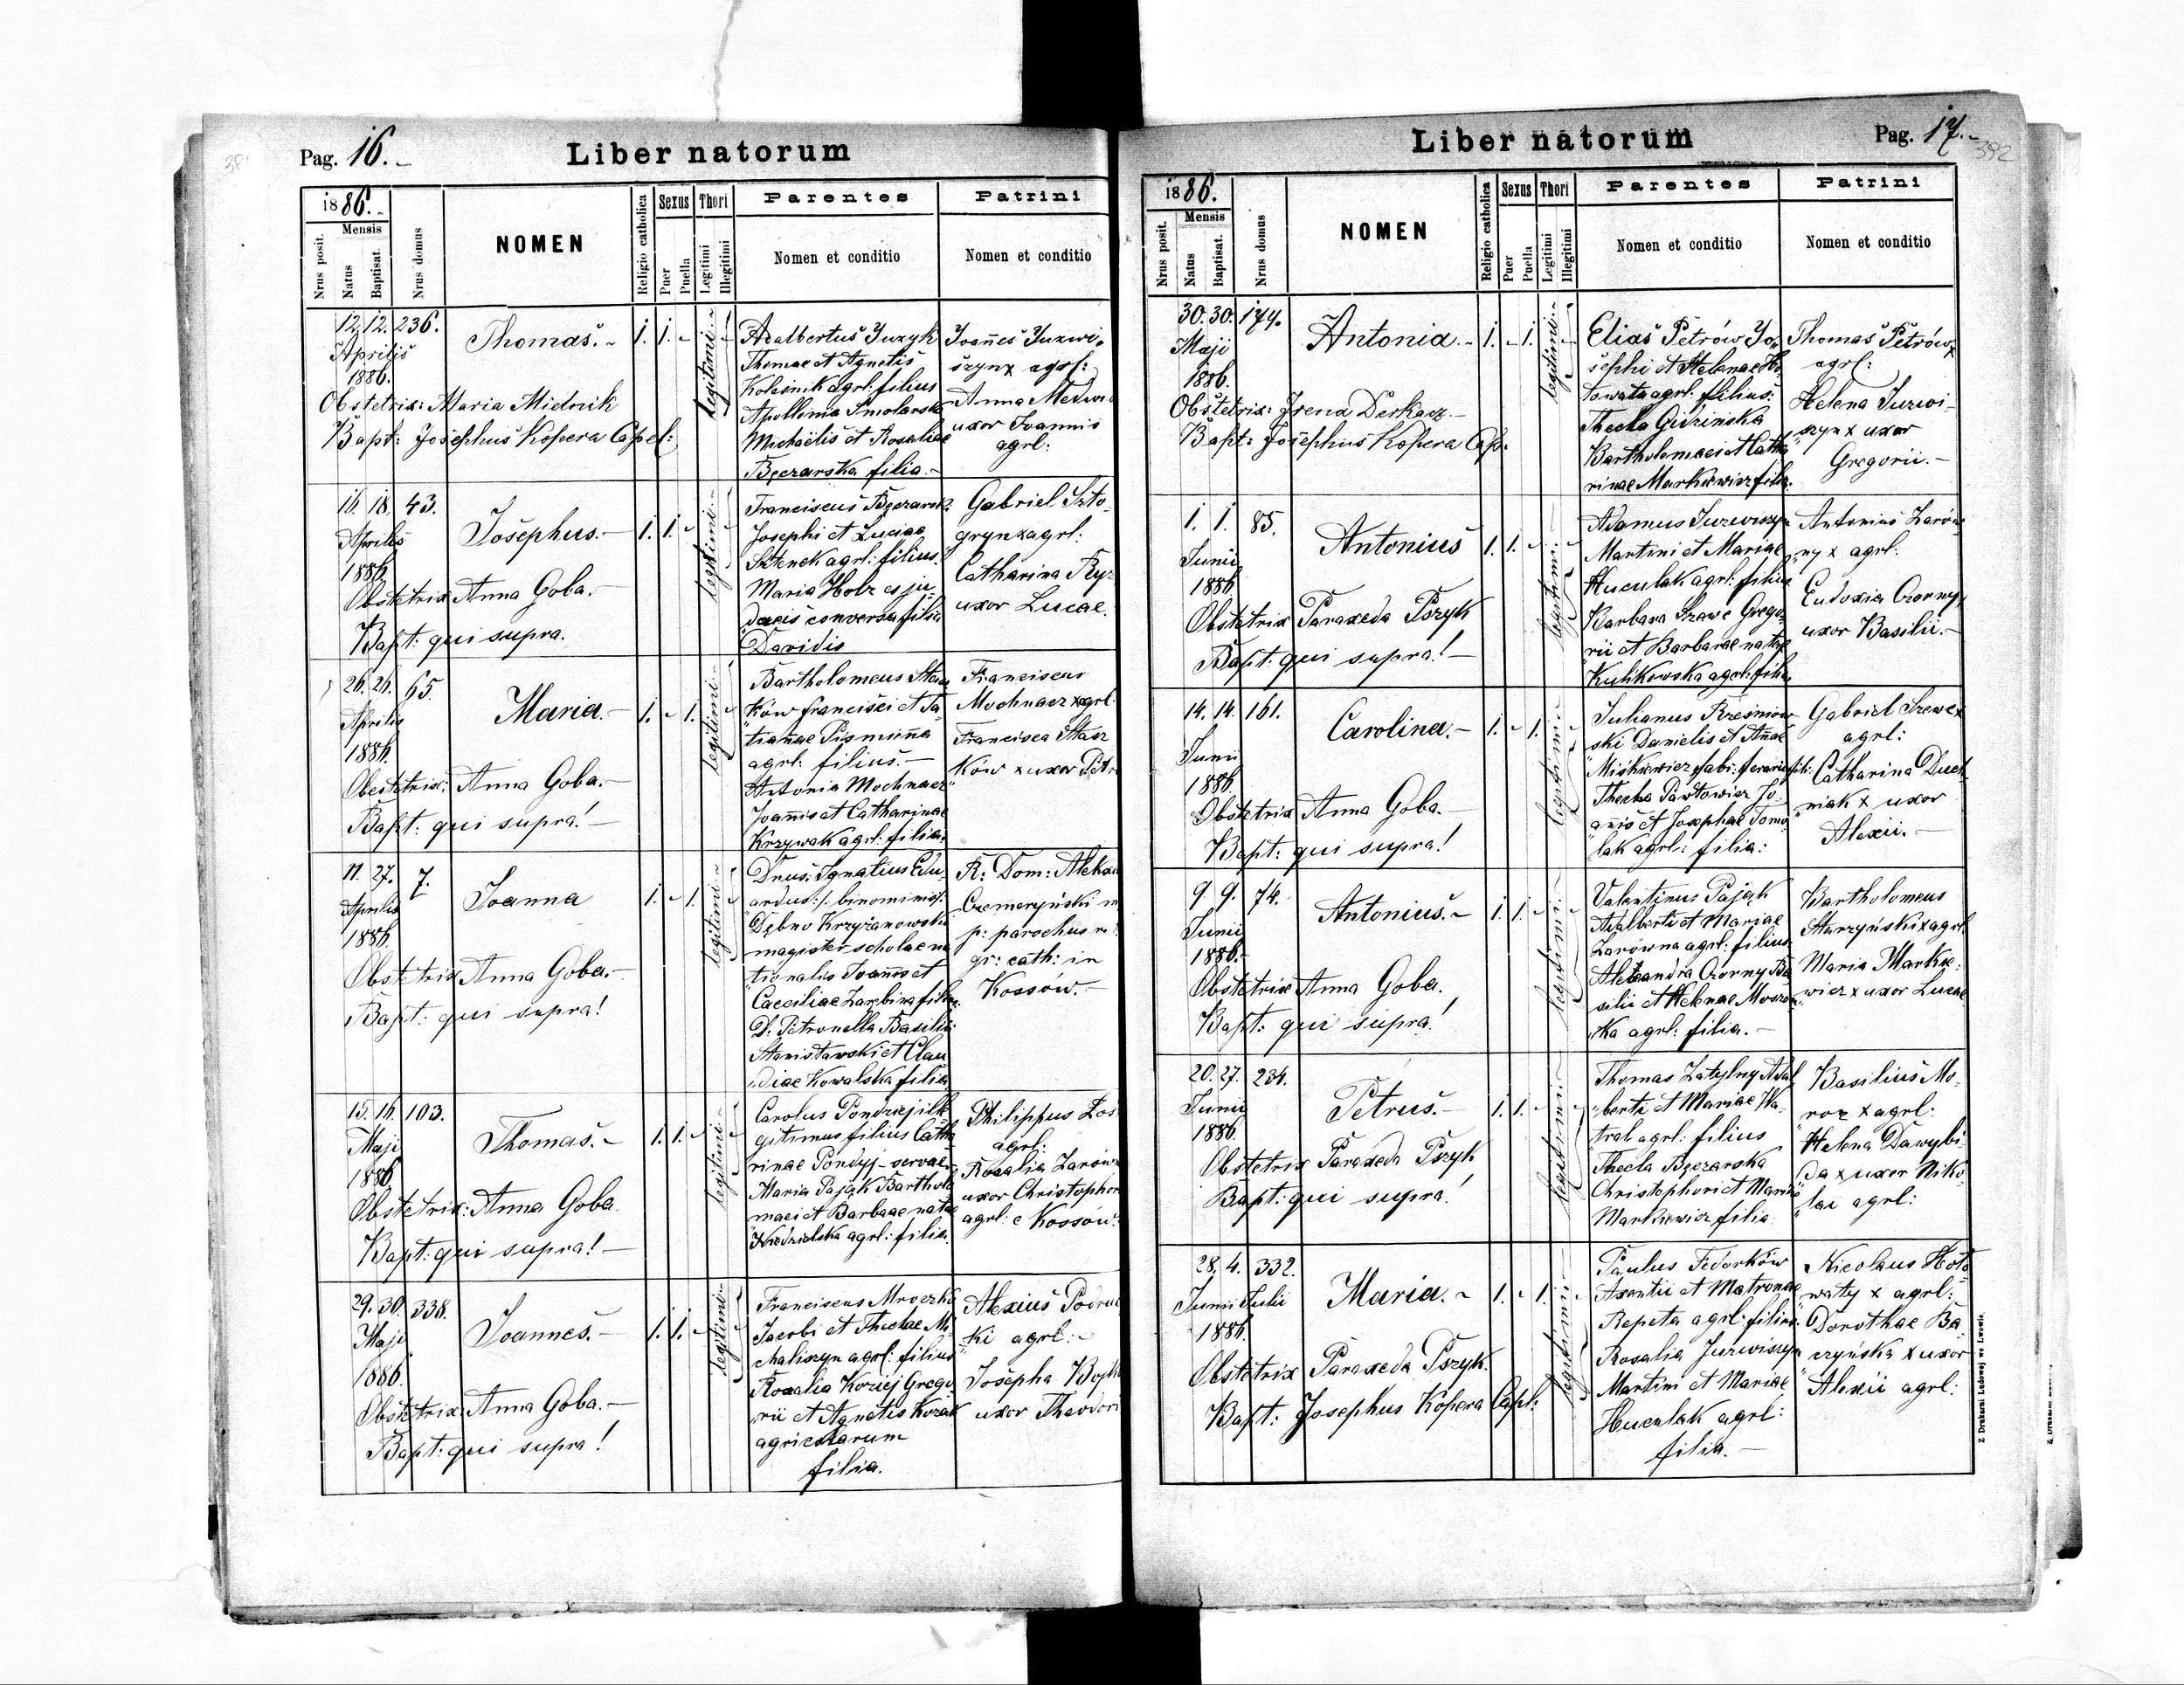 Pag. 16.-
Liber natorum
1886.
Nrus posit.
Mensis
Natus
Baptisat.
Nrus domus
NOMEN
Religio catholica
Sexus
Puer
Puella
Thori
Legitimi
Illegitimi
Parentes
Nomen et conditio
Patrini
Nomen et conditio
12. 12. 236.
Aprilis
1886.
Thomas.-
1. 1. -
legitimi
Obstetrix: Maria
Bapt: Josephus Kopera Capel:
Adalbertus
Thomae et Agnetis
Kolesnik agrl: filius
Apollonia Smolarska
Michaëlis et Rosaliae
Bęczarska filia.-
Joannes Juzwi-
szyn x agrl:
Anna
uxor Joannis
agrl:
16. 18. 43.
Aprilis
1886
Josephus.-
1. 1. -
legitimi
Obstetrix Anna Goba.-
Bapt: qui supra.
Franciscus Bęczarsk
Josephi et Luciae
agrl: filius.
Maria Holz ex ju-
daeis conversa filia
Davidis
Gabriel Szto-
gryn x agrl:
Catharina
uxor Lucae.
26. 26. 65.
Aprilis
1886.
Maria.-
1. - 1.
legitimi
Obstetrix: Anna Goba.-
Bapt: qui supra!-
Bartholomeus
ków Francisci et Ta-
tianae
agrl: filius.-
Antonia Mochnacz
Joannis et Catharinae
Krzywak agrl: filia.
Franciscus
Mochnacz x agrl.
Francisca Stasz
ków x uxor Petr
11. 27. 7.
Aprilis
1886.
Joanna
1. - 1.
legitimi
Obstetrix Anna Goba.-
Bapt: qui supra!
Dnus: Ignatius Edu-
ardus binominis
Dębno Krzyżanowski
magister scholae na
tionalis Joannis et
Caeciliae Zarębina filius.
D: Petronella Basilii
Stanisławski et Clau
diae Kowalska filia
R: Dom:
Czemeryński
p: parochus
gr: cath: in
Kossów.-
15. 16. 103.
Maji
1886.
Thomas.-
1. 1. -
legitimi
Obstetrix: Anna Goba.
Bapt: qui supra!-
Carolus
gitimus filius Catha
rinae - servae.
Maria Pająk Bartholo
maei et Barbarae natae
agrl: filia.
Philippus
agrl:
Rosalia
uxor Christophori
agrl: e Kossów.
29. 30. 338.
Maji
1886.
Joannes.-
1. 1. -
legitimi
Obstetrix: Anna Goba.-
Bapt: qui supra!
Franciscus Mroczko
Jacobi et Theclae Mi
chaliszyn agrl: filius
Rosalia Koziej Grego
rii et Agnetis Kozak
agricolarum
filia.
Alexius
ki agrl:
Josepha
uxor Theodori
Liber natorum
Pag. 17.-
392
1886.
Nrus posit.
Mensis
Natus
Baptisat.
Nrus domus
NOMEN
Religio catholica
Sexus
Puer
Puella
Thori
Legitimi
Illegitimi
Parentes
Nomen et conditio
Patrini
Nomen et conditio
30. 30. 174.
Maji
1886.
Antonia.-
1. - 1.
legitimi
Obstetrix: Irena Derkacz.-
Bapt: Josephus Kopera Cap.
Elias Petrów Jo-
sephi et Helenae
agrl: filius.
Thecla
Bartholomaei et Catha
rinae Markiewicz filia.
Thomas Petrów x
agrl:
Helena Juzwi-
szyn x uxor
Gregorii.-
1. 1. 85.
Junii
1886.
Antonius
1. 1. -
legitimi
Obstetrix Paraxeda Pszyk
Bapt: qui supra!-
Adamus Juzwiszyn
Martini et Mariae
Huculak agrl: filius
Barbara Szewc Grego-
rii et Barbarae natae
Kulikowska agrl: filia
Antonius Zarów
ny x agrl:
Eudoxia Czorny
uxor Basilii.-
14. 14. 161.
Junii
1886.
Carolina.-
1. - 1.
legitimi
Obstetrix Anna Goba.-
Bapt: qui supra!
Julianus
ski Danielis et Annae
Miśkiewicz fabri ferrarii fil:
Thecla Pawłowicz Jo-
annis et Josephae Tomo
lak agrl: filia:
Gabriel Szewc x
agrl:
Catharina Duch
niak x uxor
Alexii.-
9. 9. 74.
Junii
1886.-
Antonius.-
1. 1. -
legitimi
Obstetrix Anna Goba.
Bapt: qui supra!
Valentinus Pająk
Adalberti et Mariae
Zarówna agrl: filius
Alexandra Czorny Ba
silii et Helenae
ka agrl: filia.-
Bartholomeus
Starzyński x agrl.
Maria Markie-
wicz x uxor Lucae
20. 27. 234.
Junii
1886.
Petrus.-
1. 1. -
legitimi
Obstetrix Paraxeda Pszyk
Bapt: qui supra!
Thomas Zatylny Adal
berti et Mariae
agrl: filius
Thecla Bęczarska
Christophori et Mariae
Markiewicz filia.
Basilius Mo-
roz x agrl:
Helena Dawybi
da x uxor Niko
lai agrl:
28. 4. 332.
Junii Julii
1886.
Maria.-
1. - 1.
legitimi
Obstetrix Paraxeda Pszyk.
Bapt: Josephus Kopera Capl:
Paulus Fedorków
Axentii et Matronae
Repeta agrl: filius.
Rosalia Juzwiszyn
Martini et Mariae
Huculak agrl:
filia.-
Nicolaus Hoło
waty x agrl:
Dorothae Ba
czyńska x uxor
Alexii agrl:
Z Drukarni Ludowej we Lwowie